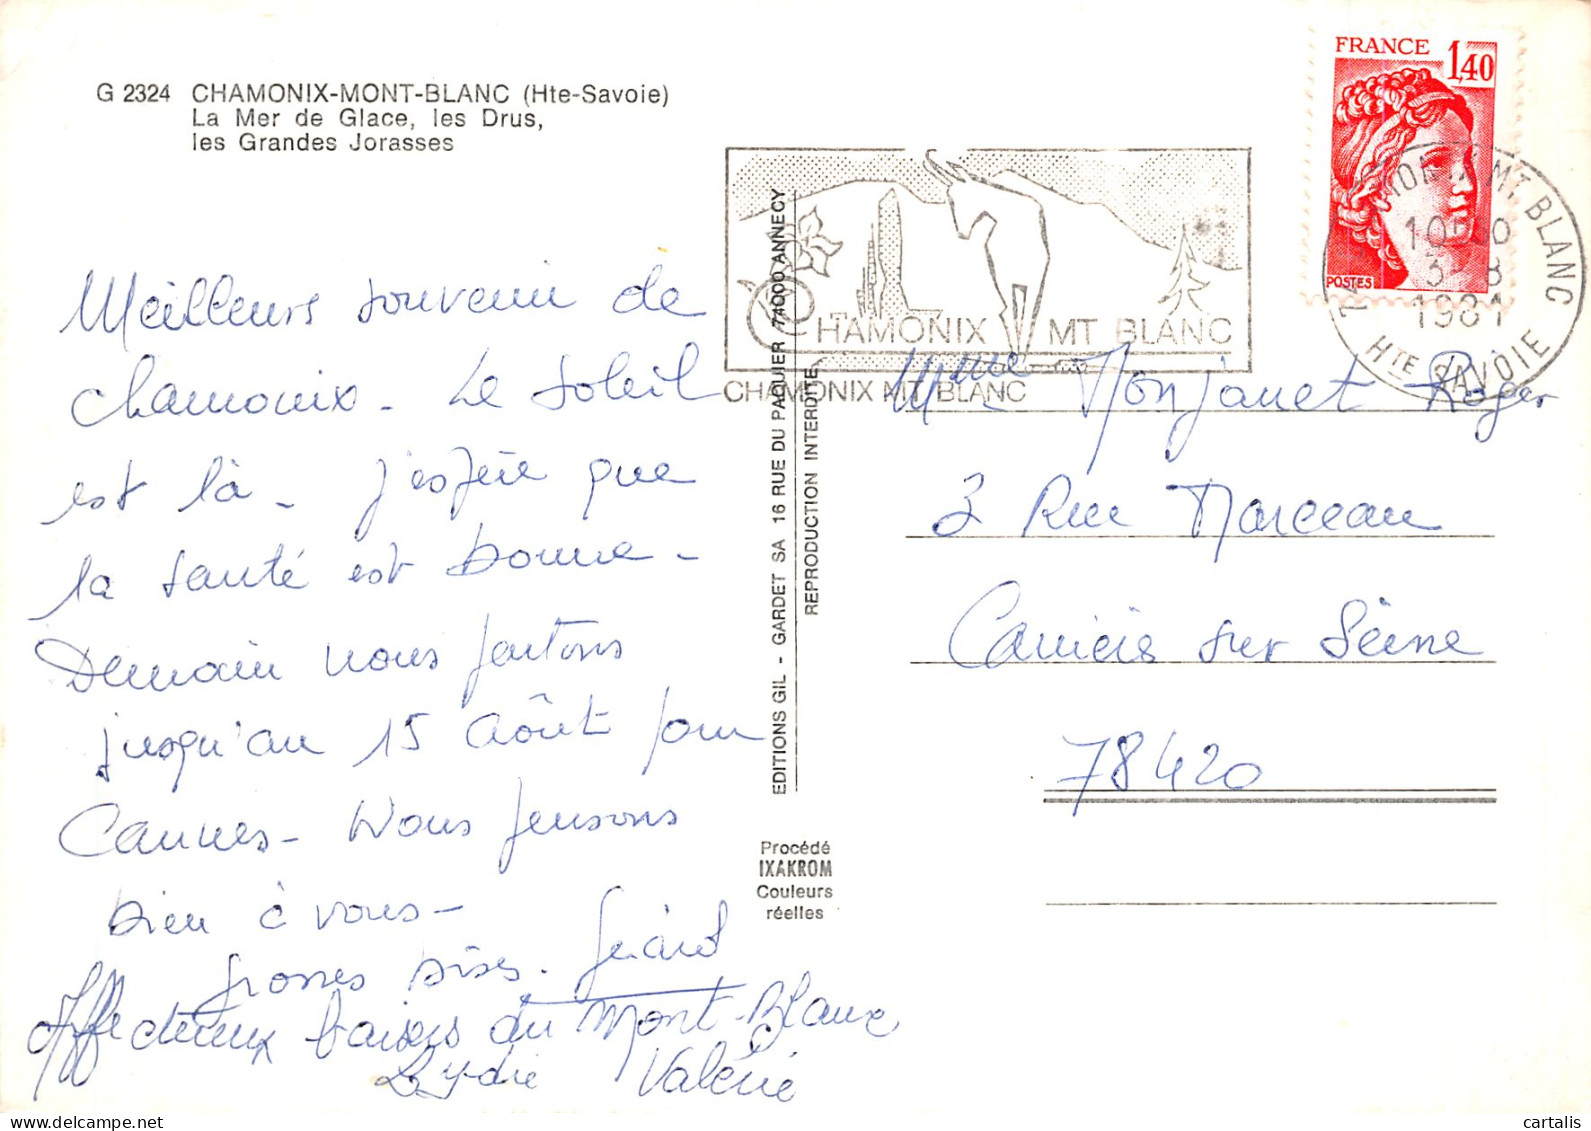 G 2324 CHAMONIX-MONT-BLANC (Hte-Savoie)
La Mer de Glace, les Drus,
les Grandes Jorasses
Meilleurs souvenir de
Chamonix - Le soleil
est là - J'espère que
la santé est bonne -
Demain nous partons
jusqu'au 15 Août pour
Cannes - Nous pensons
bien à vous -
Grosses bises. Gérard
Affectueux baisers du Mont-Blanc
Lydie Valérie
EDITIONS GIL - GARDET SA 16 RUE DU PAQUIER 74000 ANNECY
REPRODUCTION INTERDITE
Procédé
IXAKROM
Couleurs
réelles
CHAMONIX MT BLANC
CHAMONIX MT BLANC
FRANCE 1,40
POSTES
MT BLANC
1981
HTE SAVOIE
Mme Monjanet Roger
3 Rue Marceau
sur Seine
78420
cartalis.com